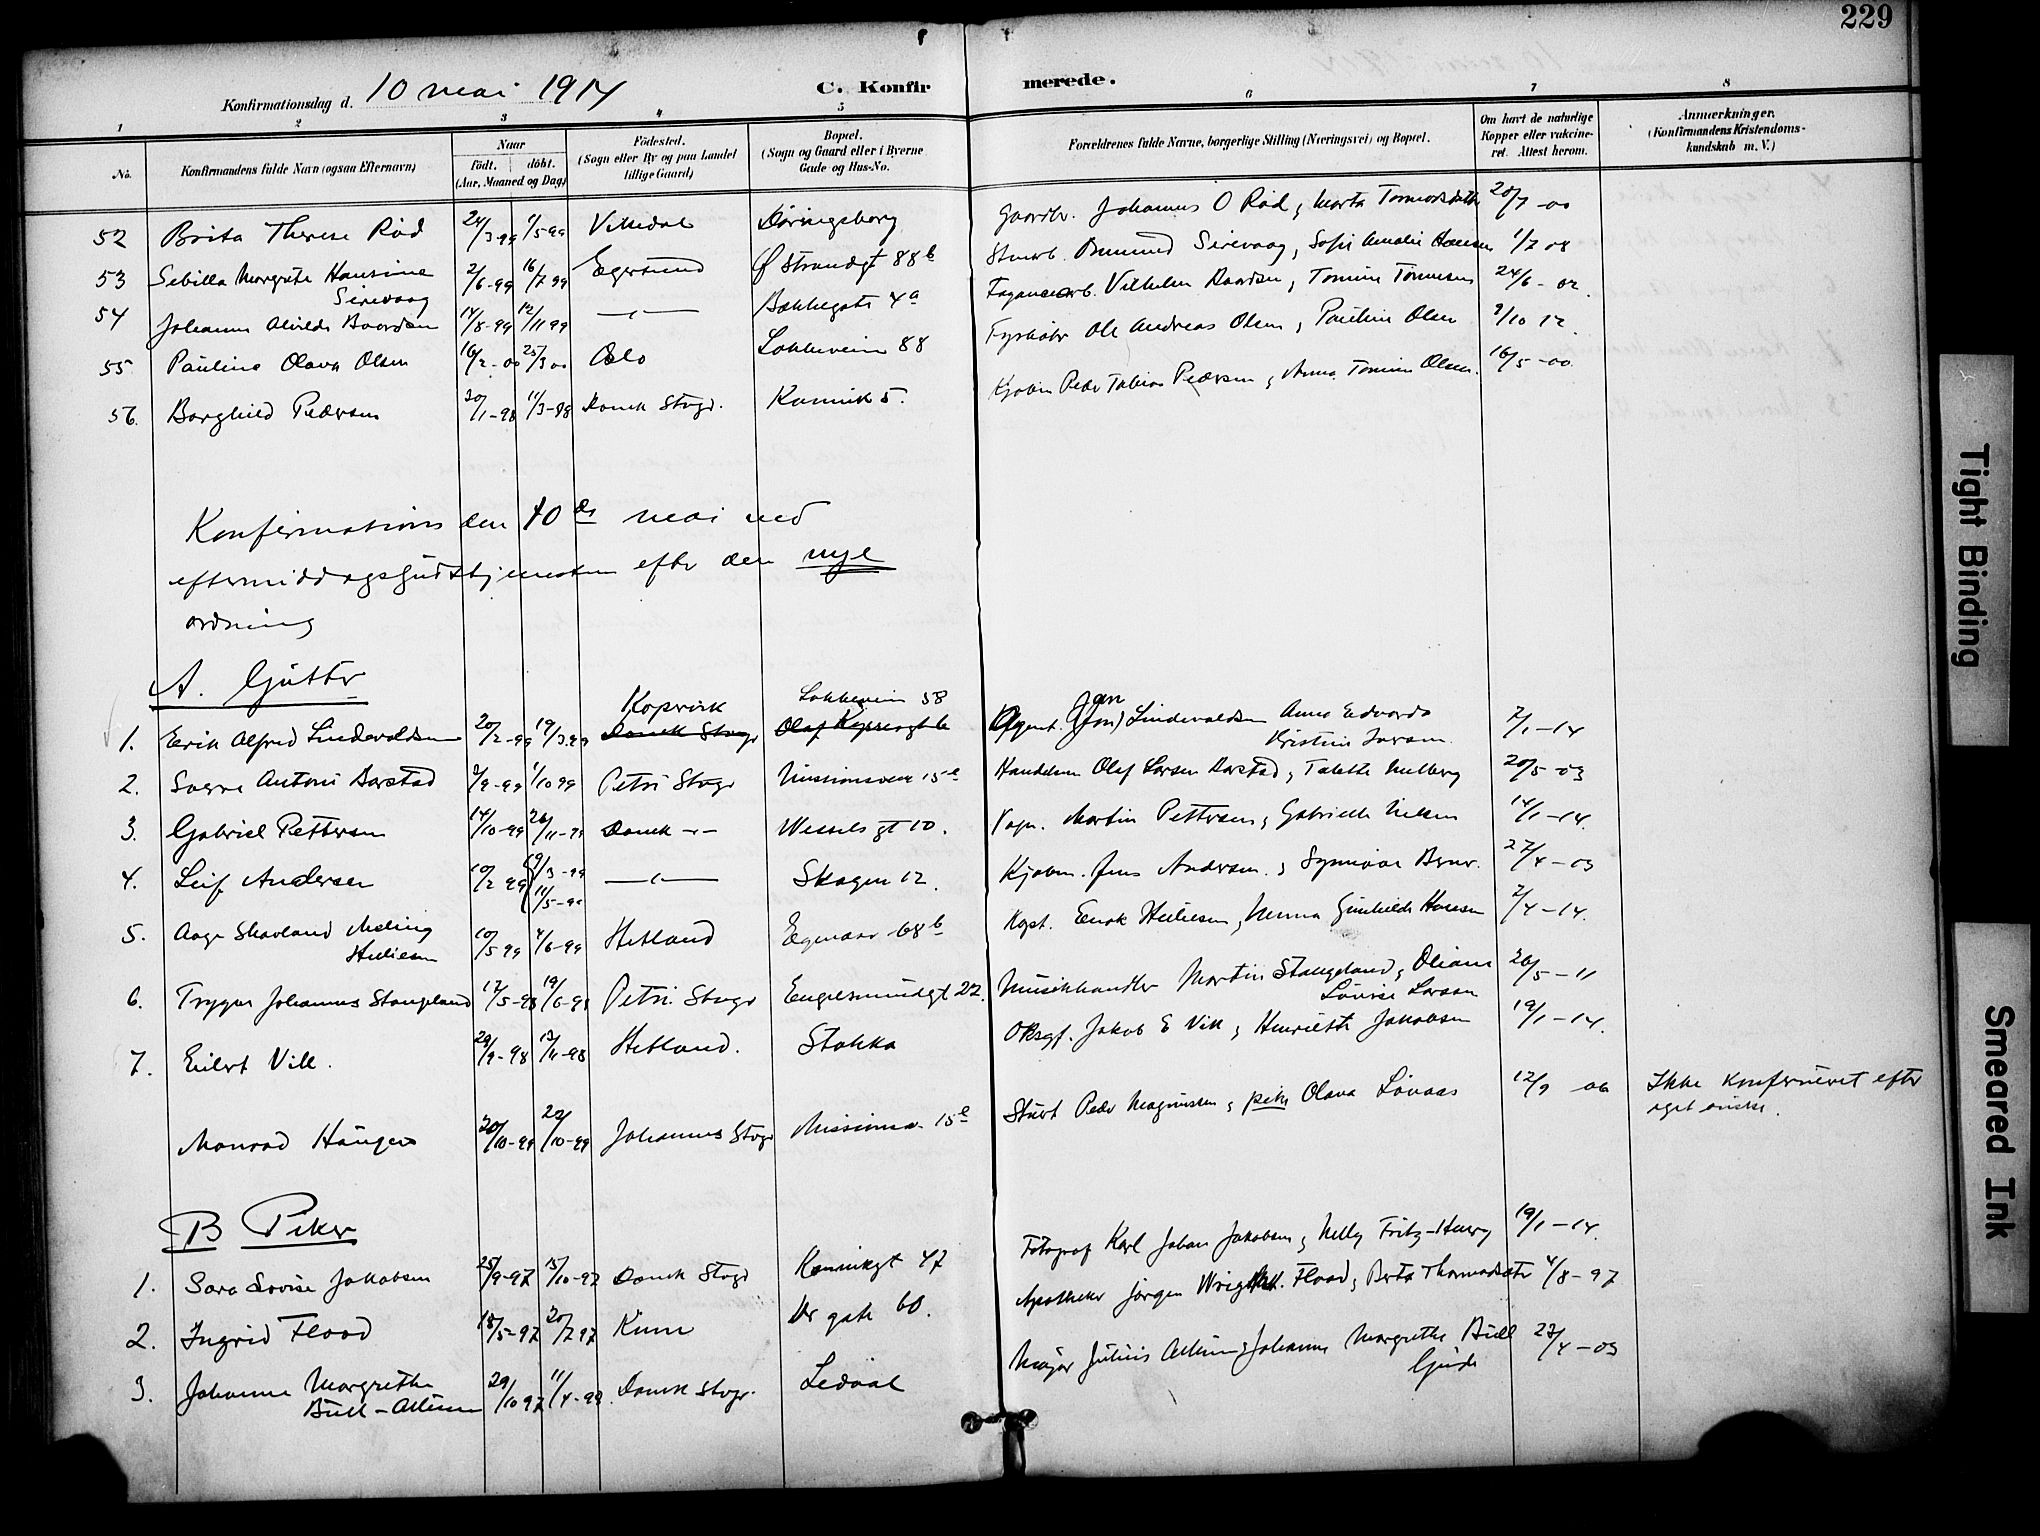 229
Konfirmationsdag d. 10 mai 1914 C. Konfirmerede.
1 2 3 4 5 6 7 8
No. Konfirmandens fulde Navn (ogsaa Efternavn) Naar födt. döbt. (Aar, Maaned og Dag) Födested. (Sogn eller By og paa Landet tillige Gaard) Bopæl. (Sogn og Gaard eller i Byerne Gade og Hus-No. Forældrenes fulde Navne, borgerlige Stilling (Næringsvei) og Bopæl. Om havt de naturlige Kopper eller vakcineret. Attest herom. Anmærkninger. (Konfirmandens Kristendomskundskab m. V.)
52 Brita Therese Röd 24/3-99 1/5 99 Vikedal Gaardbr. Johannes O Röd, Marta 20/7-00
53 Sebilla Margrete Hansine Sirevaag 2/6-99 16/7 99 Egersund Ø Strandgt 88b Sirevaag, Sofie Amalie Hansen 1/7 08
54 Johanne Alvilde Baardsen 14/8-99 12/11 99 —"— Bakkegata 4a Vilhelm Baardsen, Tomine Tönnesen 24/6-02
55 Pauline Olava Olsen 16/2-00 25/3 00 Oslo Lokkeveien 88 Fyrbøter Ole Andreas Olsen, Pauline Olsen 9/10 12
56. Borghild Pedersen 20/1-98 11/3-98 Domk Stvgr. Kannik 5. Kjøbm Peder Tobias Pedersen, Anna Tomine Olsen. 16/5-00
Konfirmations den 10de mai ved
eftermiddagsgudstjenesten efter den nye
ordning
A. Gutter
1. Erik Alfred Lindevaldsen 20/2-99 19/3 99 Kopervik Domk Stvgr Lokkeveien 58 Agent. Jan (Jon) Lindevaldsen Anne Edvarda Kristine 7/1-14
2. Sverre Antoni Barstad 2/9-99 1/10 99 Petri Stvgr Missionsvei 15e Handelsm Olaf Larsen Barstad, Talette Melberg 20/5-03
3. Gabriel Pettersen 14/10-99 26/11-99 Domk -"- Wessels gt 10. Martin Pettersen, Gabrielle Nielsen 14/1-14.
4. Leif Andersen 10/2 99 19/3-99 11/5-99 —"— Skagen 12. Kjøbm. Jens Andersen, 27/4-03
5. Aage Skavland Meling 10/5 99 4/6-99 Hetland 68b Kapt. 7/4-14.
6. Trygve Johannes Stangeland 17/5-98 19/6-98 Petri Stvgr Engelsmindgt 22. Musikhandler Martin Stangeland, Oliane Lovise Larsen 20/5-11
7. Eilert Vik. 29/9-98 13/11-98 Hetland. Stokka Jakob E Vik, Henriette Jakobsen 19/1-14.
Monrad Hauger 20/10-99 29/10-99 Johannes Stvgr Missionsv. 15e Peder Magnussen, pike Olava Lövaas 12/9 06 Ikke konfirmeret efter eget ønske.
B Piker
1. Sara Lovise Jakobsen 25/9-97 15/10-97 Domk Stvgr Kannikgt 47 Fotograf Karl Johan Jakobsen, Nelly Fritz-Henry 19/1-14.
2. Ingrid Flood 18/5-97 20/7 97 Kinn Dr gate 60. Apotheker Jørgen Flood, Berta 4/8-97
3. Johanne Margrethe Bull- 29/10 97 11/4-99 Domk Stvgr. Ledaal Major Julius Johanne Margrethe Bull Gjerde 23/4-03
Tight Binding
Smeared Ink